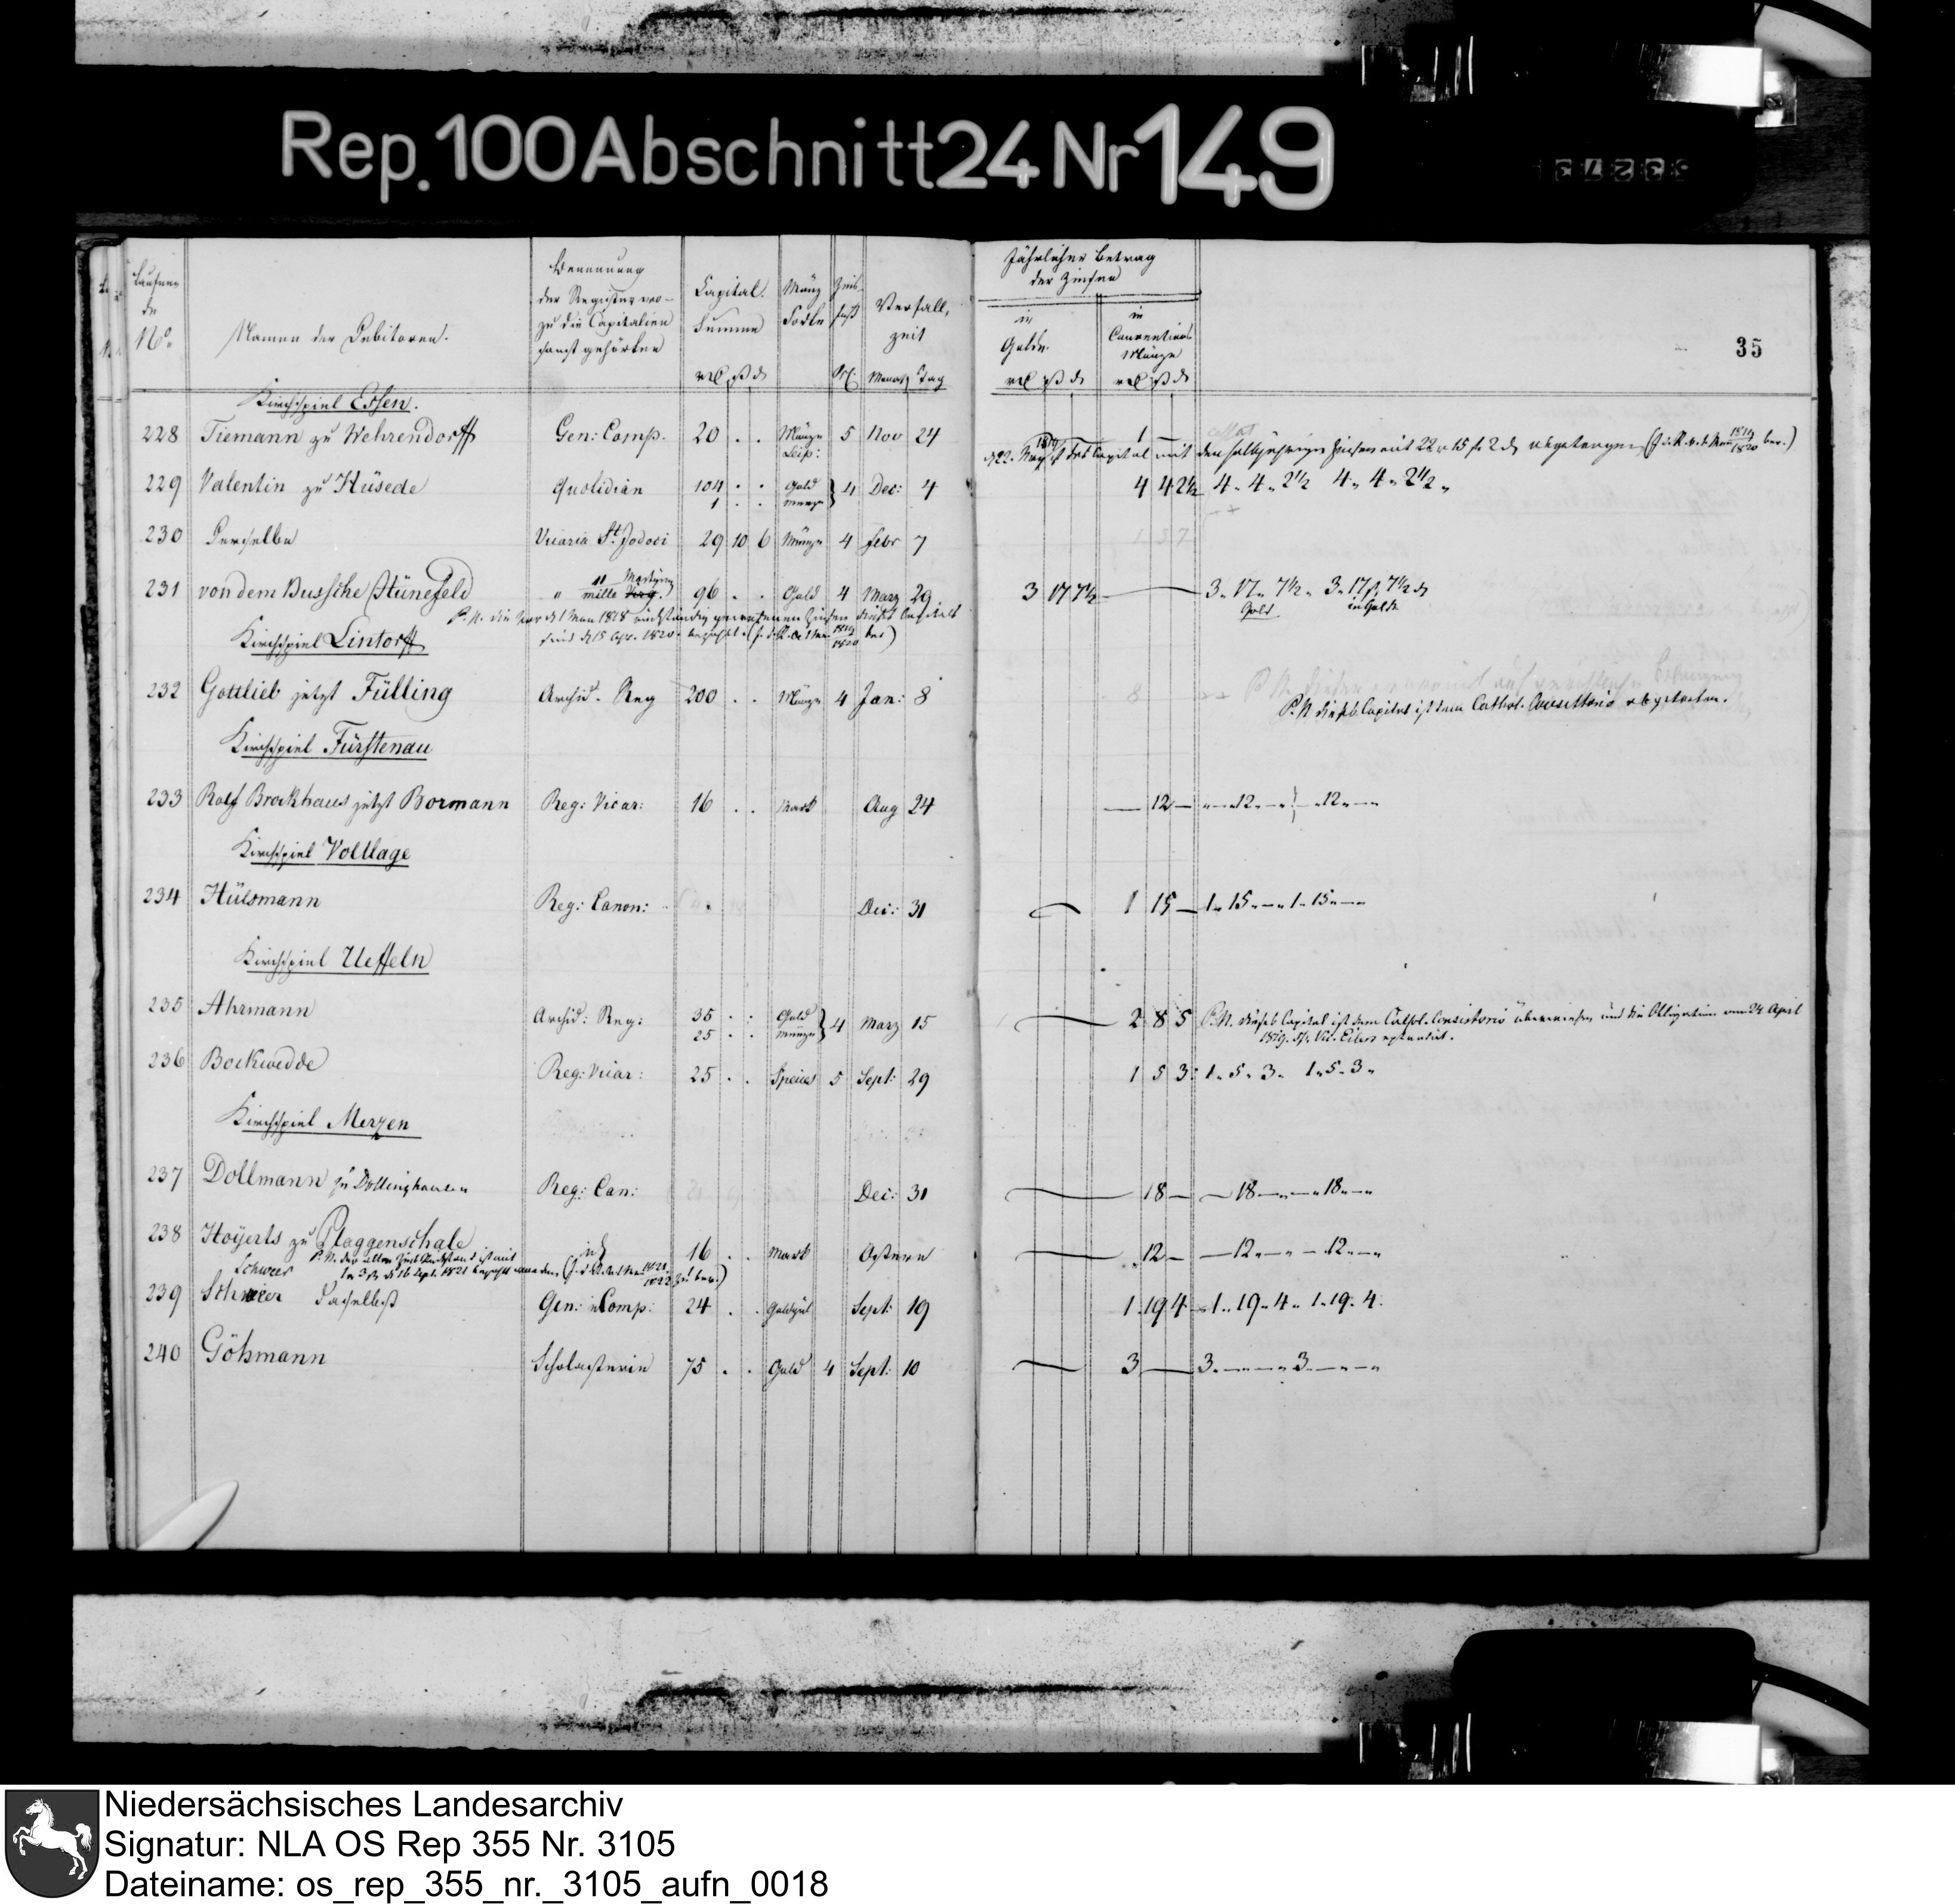 Rep. 100 Abschnitt 24 Nr 149
33273
35
Laufen-
de
No.
Namen der Debitoren.
Benennung
der Register wo-
zu die Capitalien
sonst gehörten
Capital.
Summe
Münz
Sorte
Zins
fuß
Verfall-
zeit
Monath Tag
Jährlicher Betrag
der Zinsen
in
Golde.
in
Conventions
Münze
Kirchspiel Essen.
228 Tiemann zu Wehrendorff Gen: Comp. 20 . . Münze 5 Nov 24 1 —
Leip:
d 22. May 1819 ist das Capital mit den halbjährigen Zinsen mit 22 15 ß 2 d abgetragen (1819/1820 ber.)
229 Valentin zu Hüsede Quotidian 104 . . Gold } 4 Dec: 4 4 4 2½ 4. 4. 2½ 4. 4. 2½.
1 . . Münze
230 Derselbe Vicaria St. Jodoci 29 10 6 Münze 4 Febr 7 1 3 7
231 von dem Bussche / Hünefeld " 11 mille Martyrum Virg. 96 . . Gold 4 Marz 29 3 17 7½ — 3. 17. 7½. 3. 17 ß 7½ d
Gold in Golde
P. N. die vor d 1 May 1818 rückständig gewesenen Zinsen dieses Capitals
sind d 15 Apr. 1820. bezahlt. (1819/1820 ber)
Kirchspiel Lintorff
232 Gottlieb jetzt Fülling Archid. Reg 200 . . Münze 4 Jan: 8 8
P. N. dieses Capital ist dem Cathol. Consistorio abgetreten.
Kirchspiel Fürstenau
233 Rolf Brockhaus jetzt Bormann Reg: Vicar: 16 . . Mark Aug 24 — 12 — 12 — 12 —
Kirchspiel Voltlage
234 Hülsmann Reg: Canon: Dec: 31 1 15 — 1. 15. — 1. 15. —
Kirchspiel Ueffeln
235 Ahrmann Archid: Reg: 35 . . Gold } 4 Marz 15 2 8 5 P. N. dieses Capital ist dem Cathol. Consistorio überwiesen und die Obligation vom 24 April
25 . . Münze
1819. Vic. Eilers extradirt.
236 Bockwedde Reg: Vicar: 25 . . Species 5 Sept: 29 1 5 3 1. 5. 3. 1. 5. 3.
Kirchspiel Merzen
237 Dollmann zu Döllinghausen Reg: Can: Dec: 31 18 — 18 — 18 —
238 Hoyerts zu Plaggenschale id 16 . . Mark Ostern 12 — 12 — 12 —
P. N. der alte Zins Rückstand ist mit
3 ß d 16 Sept. 1821 bezahlt worden (1821/1822 zu ber.)
Schweer
239 Schweer Daselbst Gen: Comp: 24 . . Goldgül Sept: 19 1 19 4 1. 19. 4. 1. 19. 4.
240 Göhmann Scholasterie 75 . . Gold 4 Sept: 10 3 — 3. — 3. —
Niedersächsisches Landesarchiv
Signatur: NLA OS Rep 355 Nr. 3105
Dateiname: os_rep_355_nr._3105_aufn_0018